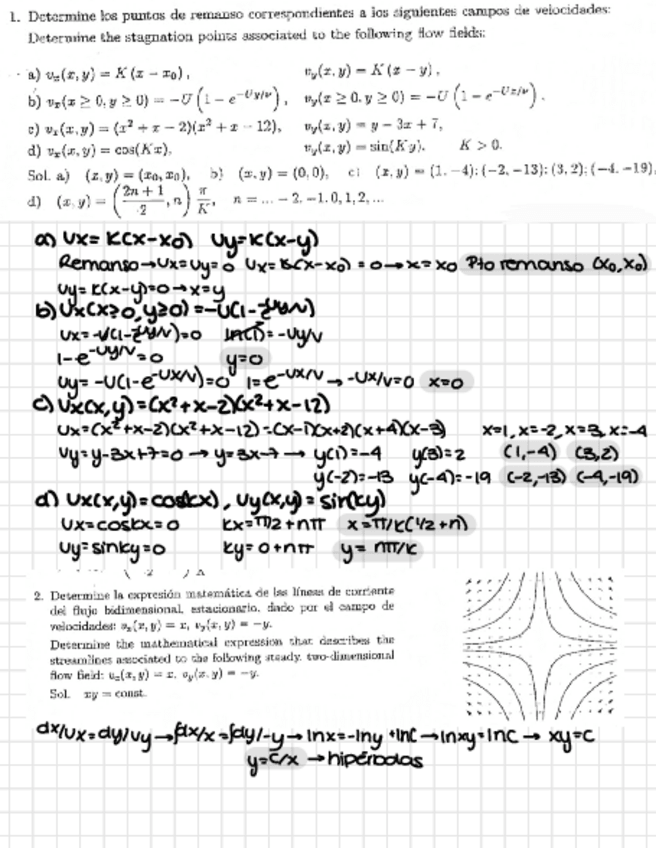 1. Determine los puntos de remanso correspondientes a los siguientes campos de velocidades:
Determine the stagnation points associated to the following flow fields:
a) vₓ(x, y) = K (x − x₀), v_y(x, y) = K (x − y),
b) vₓ(x ≥ 0, y ≥ 0) = −U (1 − e^{−Uy/ν}), v_y(x ≥ 0, y ≥ 0) = −U (1 − e^{−Ux/ν}).
c) vₓ(x, y) = (x² + x − 2)(x² + x − 12), v_y(x, y) = y − 3x + 7,
d) vₓ(x, y) = cos(Kx), v_y(x, y) = sin(Ky). K > 0.
Sol. a) (x, y) = (x₀, x₀), b) (x, y) = (0, 0), c) (x, y) = (1, −4); (−2, −13); (3, 2); (−4, −19),
d) (x, y) = ((2n + 1)/2, n) π/K, n = ... − 2, −1, 0, 1, 2, ...
a) Ux= K(x-x0) Uy=K(x-y)
Remanso→Ux=Uy=0 Ux=K(x-x0)=0→x=x0 Pto remanso (x0,x0)
Uy=K(x-y)=0→x=y
b) Ux(x≥0,y≥0)=-U(1-
Ux=-U(1- =0 ln(1)=-Uy/v
1-e^-Uy/v=0 y=0
Uy= -U(1-e^-Ux/v)=0 1=e^-Ux/v→-Ux/v=0 x=0
c) Ux(x,y)=(x²+x-2)(x²+x-12)
Ux=(x²+x-2)(x²+x-12)=(x-1)(x+2)(x+4)(x-3) x=1, x=-2, x=3, x=-4
Uy=y-3x+7=0→y=3x-7→y(1)=-4 y(3)=2 (1,-4) (3,2)
y(-2)=-13 y(-4)=-19 (-2,-13) (-4,-19)
d) Ux(x,y)=cos(kx), Uy(x,y)=sin(ky)
Ux=coskx=0 kx=π/2+nπ x=π/k(1/2+n)
Uy=sinky=0 ky=0+nπ y=nπ/k
2. Determine la expresión matemática de las líneas de corriente
del flujo bidimensional, estacionario, dado por el campo de
velocidades: vₓ(x, y) = x, v_y(x, y) = −y.
Determine the mathematical expression that describes the
streamlines associated to the following steady, two-dimensional
flow field: vₓ(x, y) = x, v_y(x, y) = −y.
Sol. xy = const.
dx/Ux=dy/Uy→∫dx/x=∫dy/-y→lnx=-lny+lnC→lnxy=lnC→ xy=C
y=C/x →hipérbolas